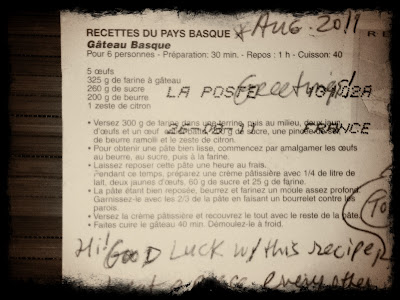 RECETTES DU PAYS BASQUE * Aug. 2011
Gâteau Basque
Pour 6 personnes - Préparation: 30 min. - Repos : 1 h - Cuisson: 40
Greetings!
5 œufs
325 g de farine à gâteau
260 g de sucre
200 g de beurre
1 zeste de citron
LA POSTE
FRANCE
• Versez 300 g de farine dans une terrine, puis au milieu, deux
d'œufs et un œuf de sucre, une pincée
de beurre ramolli et le zeste de citron.
• Pour obtenir une pâte bien lisse, commencez par amalgamer les œufs
au beurre, au sucre, puis à la farine.
• Laissez reposer cette pâte une heure au frais.
Pendant ce temps, préparez une crème pâtissière avec 1/4 de litre de
lait, deux jaunes d'œufs, 60 g de sucre et 25 g de farine.
• La pâte étant bien reposée, beurrez et farinez un moule assez profond.
Garnissez-le avec les 2/3 de la pâte en faisant un bourrelet contre les
parois.
• Versez la crème pâtissière et recouvrez le tout avec le reste de la pâte.
• Faites cuire le gâteau 40 min. Démoulez-le à froid.
To
Hi! Good Luck w/ this recipe
every other